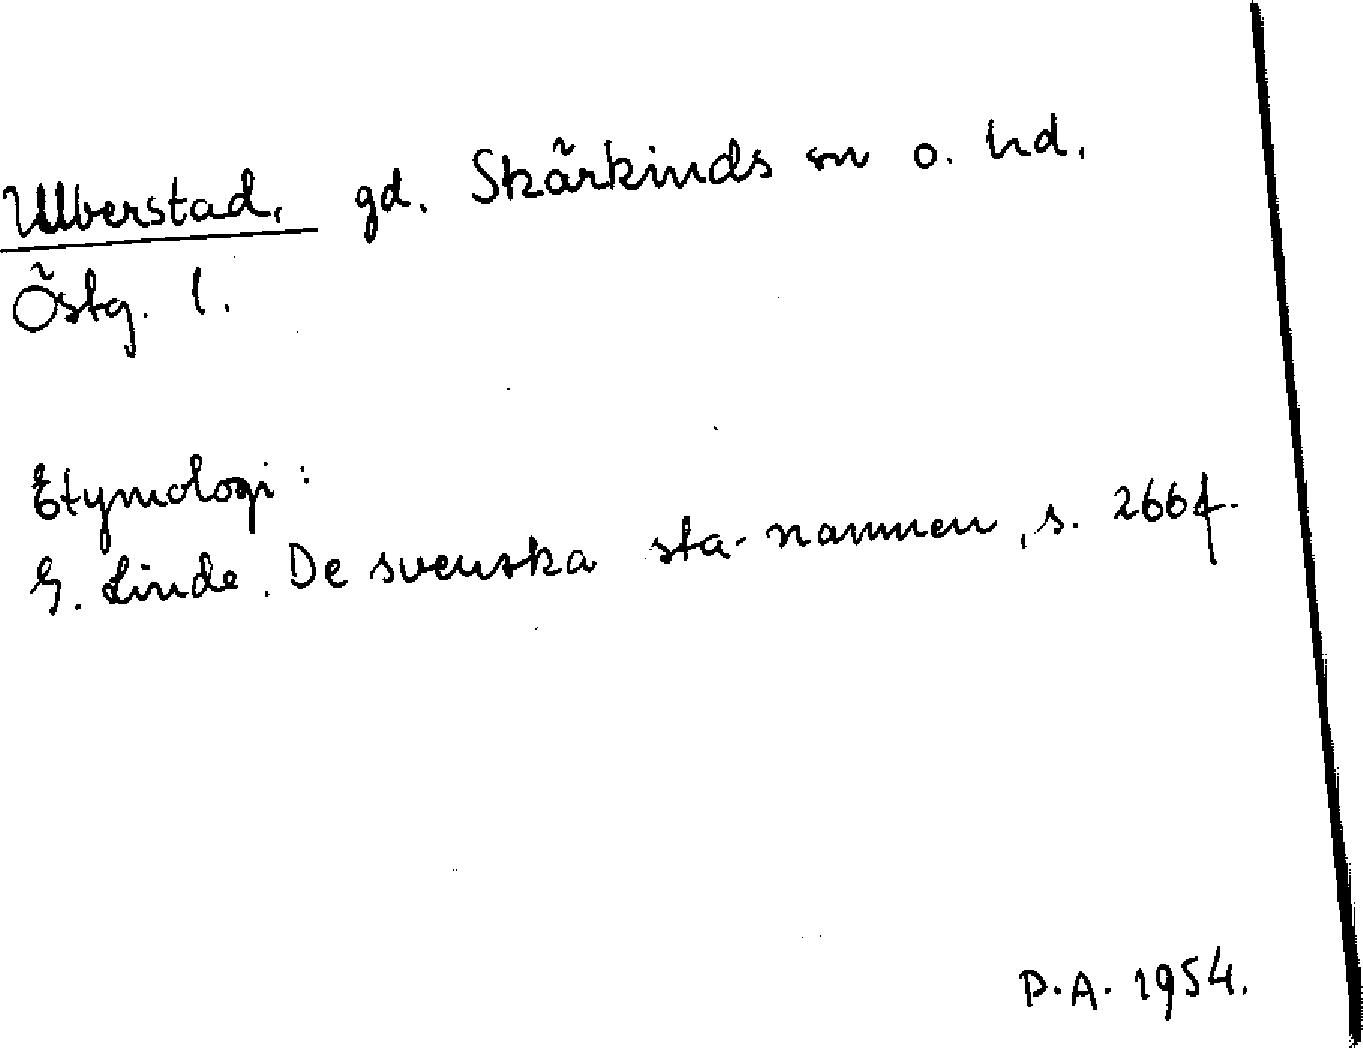 Ullberstad, gd. Skärkinds sn o. hd.
Östg. l.
Etymologi:
G. Linde. De svenska sta-namnen, s. 266 f.
P.A. 1954.